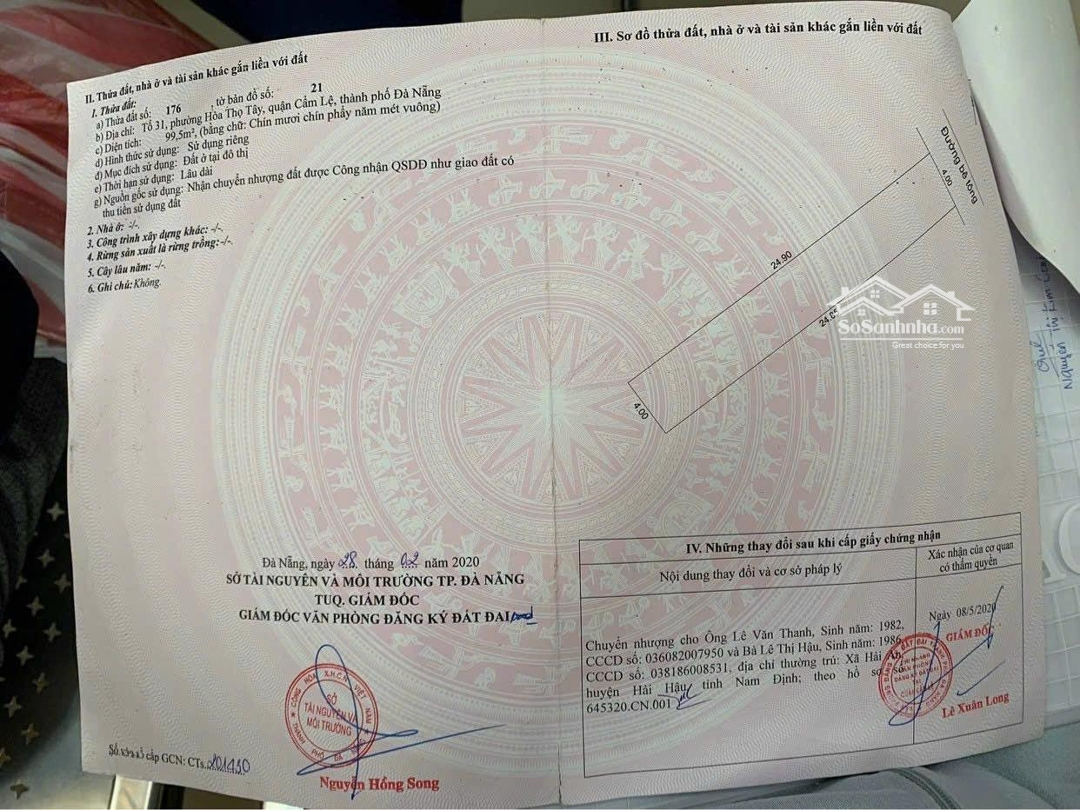 II. Thửa đất, nhà ở và tài sản khác gắn liền với đất
1. Thửa đất:
a) Thửa đất số: 176 , tờ bản đồ số: 21
b) Địa chỉ: Tổ 31, phường Hòa Thọ Tây, quận Cẩm Lệ, thành phố Đà Nẵng
c) Diện tích: 99,5m², (bằng chữ: Chín mươi chín phẩy năm mét vuông)
d) Hình thức sử dụng: Sử dụng riêng
đ) Mục đích sử dụng: Đất ở tại đô thị
e) Thời hạn sử dụng: Lâu dài
g) Nguồn gốc sử dụng: Nhận chuyển nhượng đất được Công nhận QSDĐ như giao đất có
thu tiền sử dụng đất
2. Nhà ở: -/-.
3. Công trình xây dựng khác: -/-.
4. Rừng sản xuất là rừng trồng:-/-.
5. Cây lâu năm: -/-.
6. Ghi chú: Không.
Đà Nẵng, ngày 28 tháng 02 năm 2020
SỞ TÀI NGUYÊN VÀ MÔI TRƯỜNG TP. ĐÀ NẴNG
TUQ. GIÁM ĐỐC
GIÁM ĐỐC VĂN PHÒNG ĐĂNG KÝ ĐẤT ĐAI
CỘNG HÒA X.H.C.N VIỆT NAM
SỞ
TÀI NGUYÊN VÀ
MÔI TRƯỜNG
THÀNH PHỐ ĐÀ NẴNG
Nguyễn Hồng Song
Số vào sổ cấp GCN: CTs.
III. Sơ đồ thửa đất, nhà ở và tài sản khác gắn liền với đất
Đường bê tông
4.00
24.90
24.85
4.00
SoSanhnha.com
Great choice for you
IV. Những thay đổi sau khi cấp giấy chứng nhận
Nội dung thay đổi và cơ sở pháp lý
Xác nhận của cơ quan
có thẩm quyền
Chuyển nhượng cho Ông Lê Văn Thanh, Sinh năm: 1982,
CCCD số: 036082007950 và Bà Lê Thị Hậu, Sinh năm: 1986,
CCCD số: 038186008531, địa chỉ thường trú: Xã Hải
huyện Hải Hậu, tỉnh Nam Định; theo hồ sơ số
645320.CN.001
Ngày 08/5/2020
GIÁM ĐỐC
Lê Xuân Long
Nguyễn Thị Kim